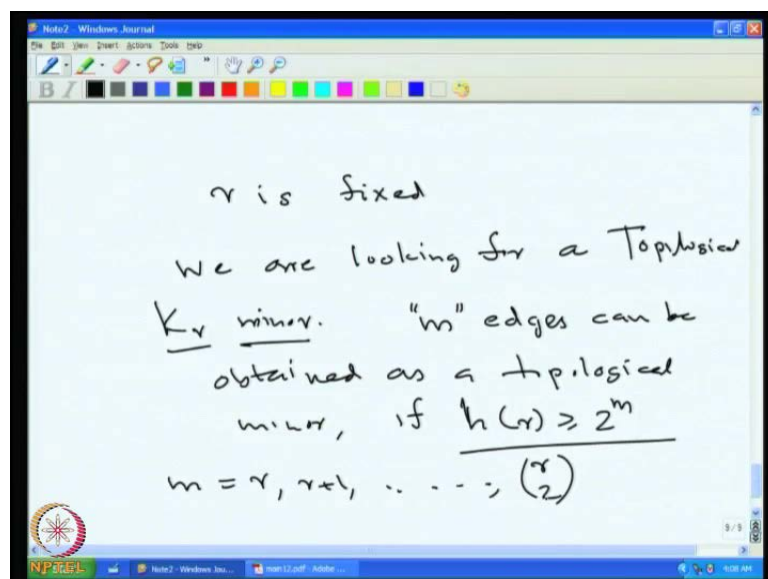 Note2 - Windows Journal
File Edit View Insert Actions Tools Help
B I
r is fixed
We are looking for a Topological
K_r minor. "m" edges can be
obtained as a tpological
minor, if h(r) ≥ 2^m
m = r, r+1, .. ...., (r 2)
9/9
NPTEL
Note2 - Windows Jou...
main12.pdf - Adobe ...
4:08 AM